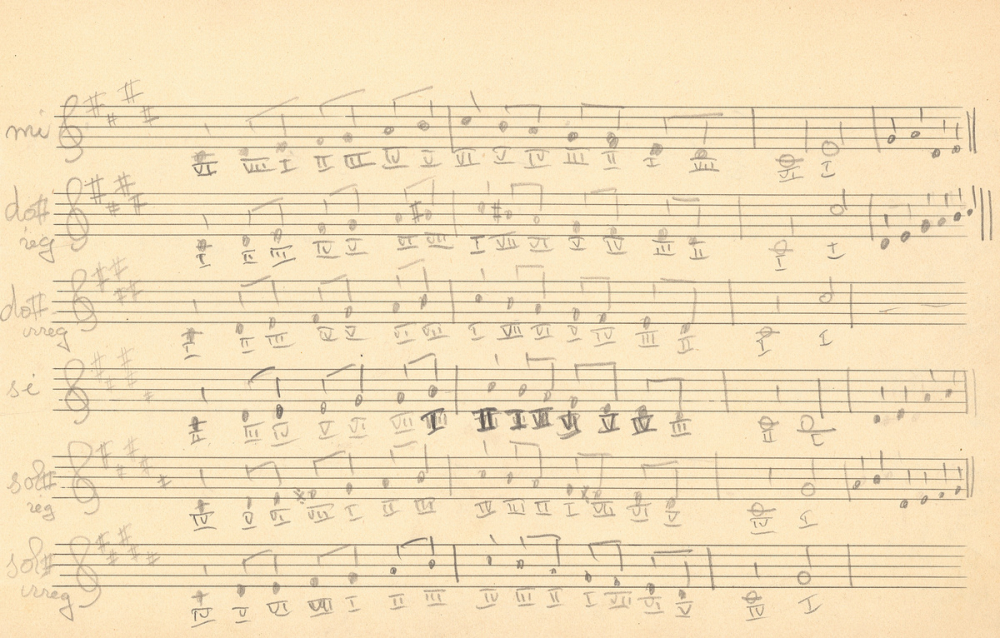 mi VI VII I II III IV V VI V IV III II I VII VI I
do# I II III IV V VI VII I VII VI V IV III II I I
reg
do# I II III IV V VI VII I VII VI V IV III II I I
irreg
si II III IV V VI VII I II I VII VI V IV III II I
sol# IV V VI VII I II III IV III II I VII VI V IV I
reg
sol# IV V VI VII I II III IV III II I VII VI V IV I
irreg